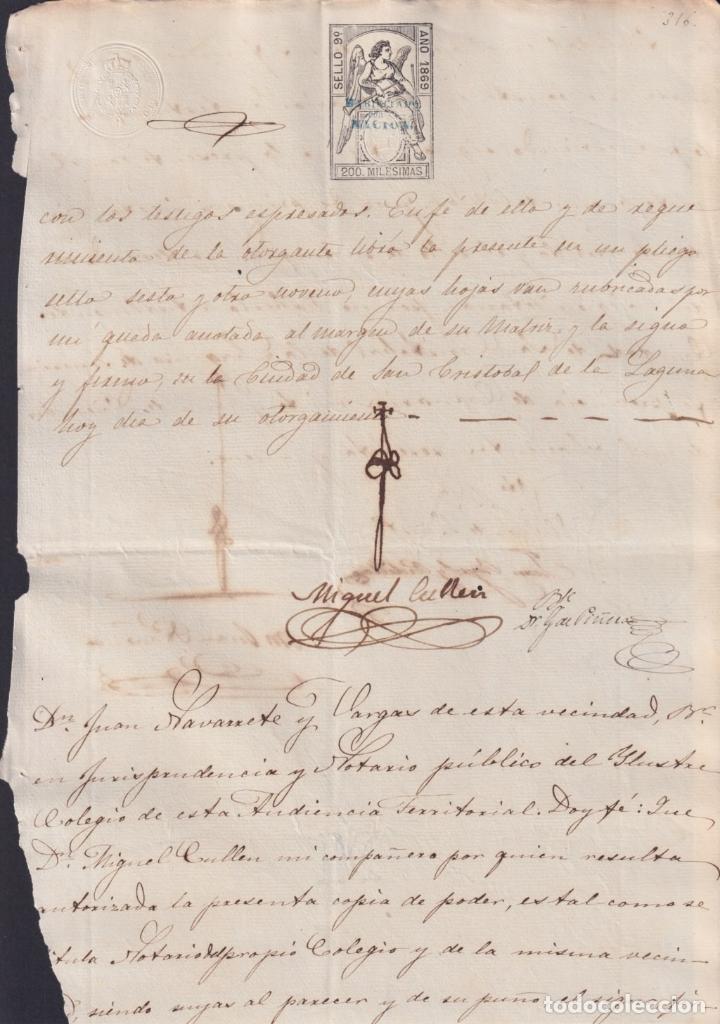 316.
SELLO 9º AÑO 1869
HABILITADO
POR LA
NACION.
200. MILESIMAS
con los testigos espresados. En fé de ello y de reque
rimiento de la otorgante libro la presente en un pliego
sello sesto y otro noveno, cuyas hojas van rubricadas por
mi queda anotada al margen de su Matriz, y la signo
y firmo, en la Ciudad de San Cristobal de la Laguna
hoy dia de su otorgamiento
Miguel Cullen
Dn. Juan Navarrete y Vargas de esta vecindad, Br.
en Jurisprudencia y Notario público del Ylustre
Colegio de esta Audiencia Territorial. Doy fé: Que
Dn. Miguel Cullen mi compañero por quien resulta
autorizada la presenta copia de poder, es tal como se
titula Notario del propio Colegio y de la misma vecin
siendo suyas al parecer y de su puño el
todocoleccion